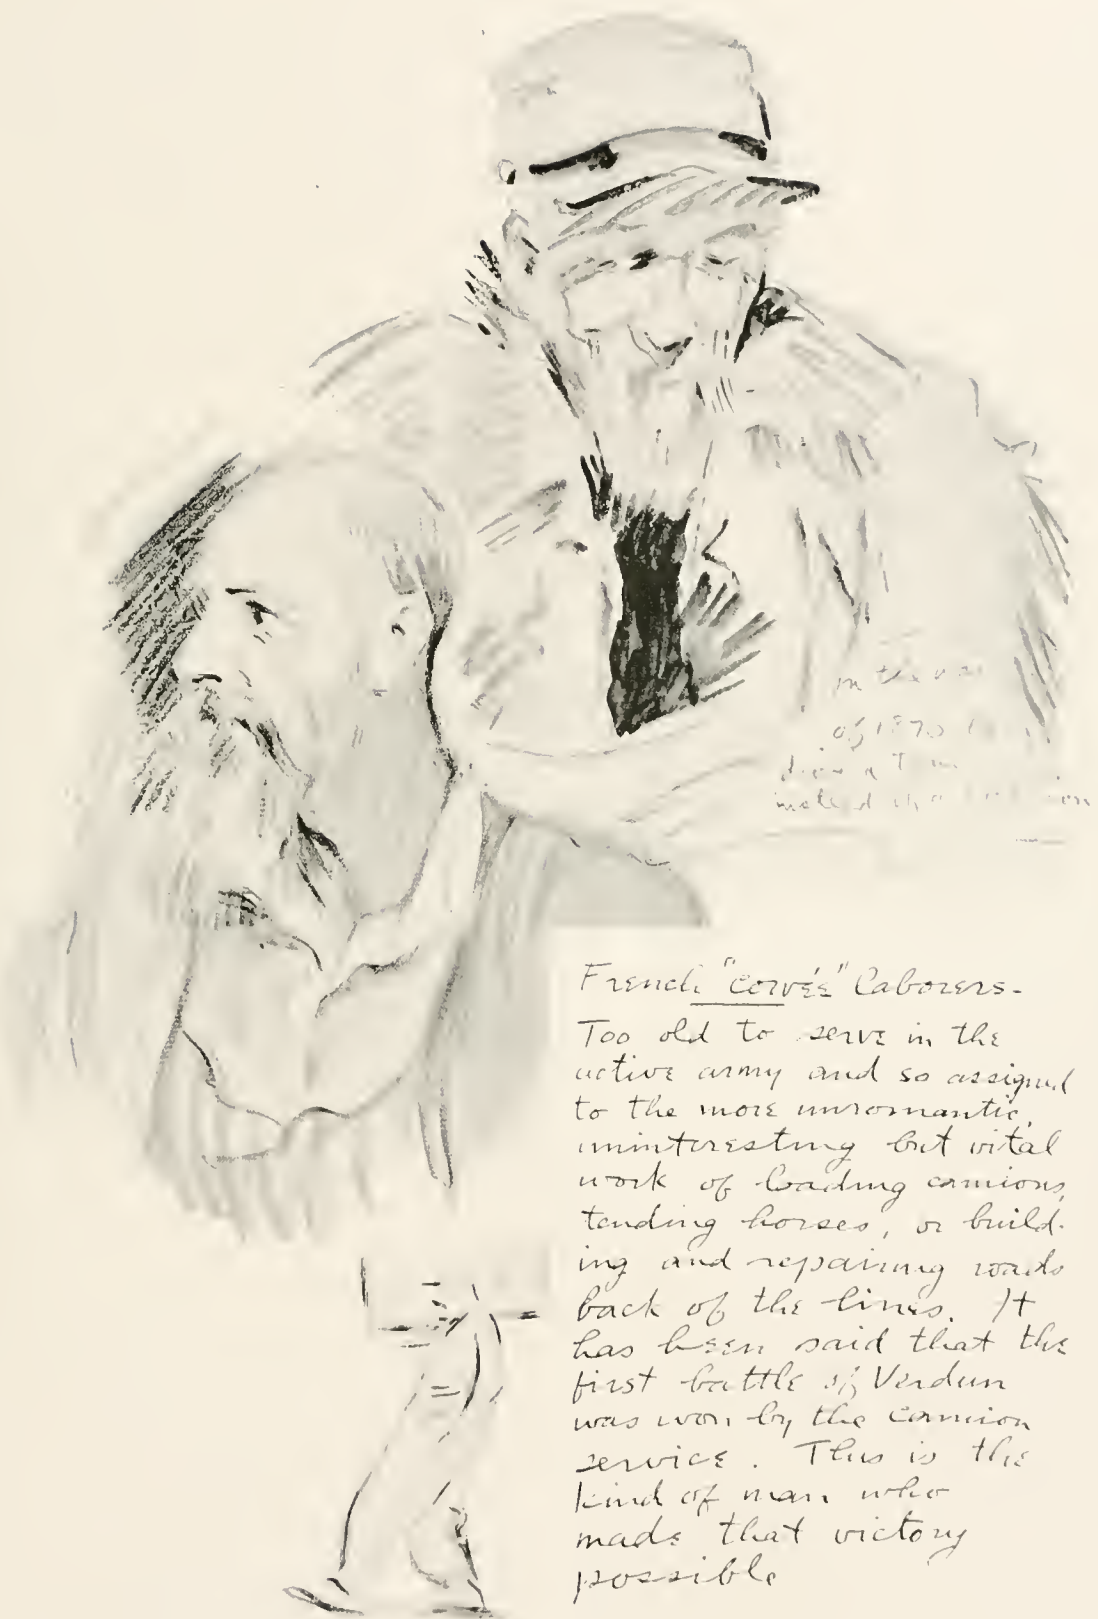 in the
of 1870
instead
French "corvée" laborers-
Too old to serve in the
active army and so assigned
to the more unromantic,
uninteresting but vital
work of loading camions,
tending horses, or build-
ing and repairing roads
back of the lines. It
has been said that the
first battle of Verdun
was won by the camion
service. This is the
kind of man who
made that victory
possible